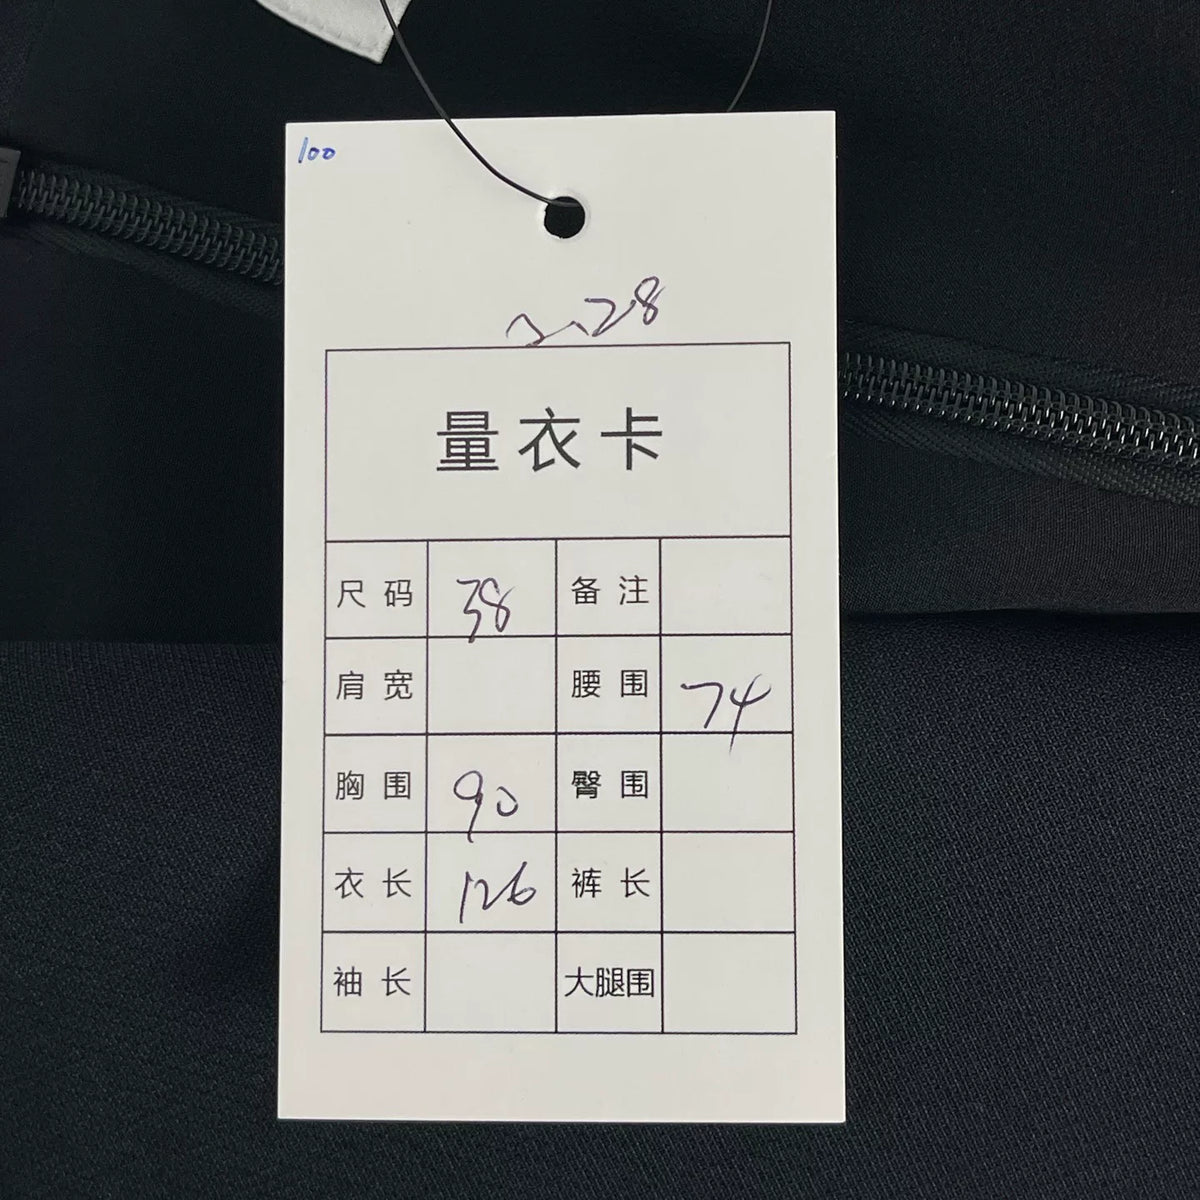 100
2.28
量衣卡
尺码 38 备注
肩宽 腰围 74
胸围 90 臀围
衣长 126 裤长
袖长 大腿围